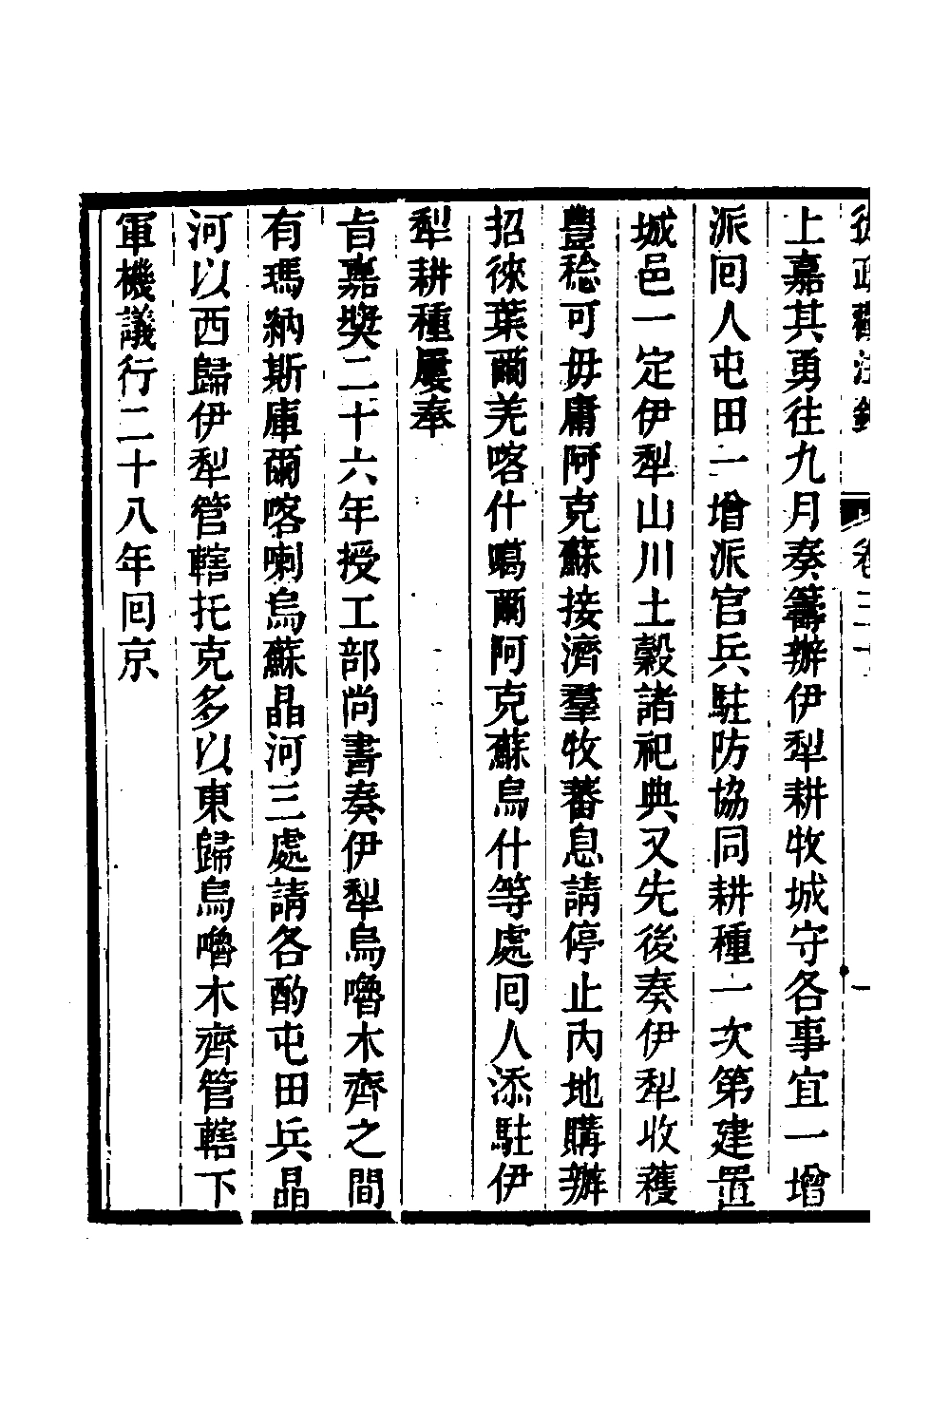 從政觀法錄 卷三十 一
上嘉其勇往九月奏籌辦伊犁耕牧城守各事宜一增
派囘人屯田一增派官兵駐防協同耕種一次第建置
城邑一定伊犁山川土穀諸祀典又先後奏伊犁收穫
豐稔可毋庸阿克蘇接濟羣牧蕃息請停止內地購辦
招徠葉爾羌喀什噶爾阿克蘇烏什等處囘人添駐伊
犁耕種屢奉
旨嘉奬二十六年授工部尚書奏伊犁烏嚕木齊之間
有瑪納斯庫爾喀喇烏蘇晶河三處請各酌屯田兵晶
河以西歸伊犁管轄托克多以東歸烏嚕木齊管轄下
軍機議行二十八年囘京